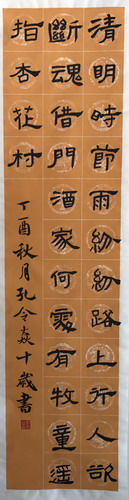 清明時節雨紛紛路上行人欲
斷魂借問酒家何處有牧童遥
指杏花村
丁酉秋月孔令焱十歲書